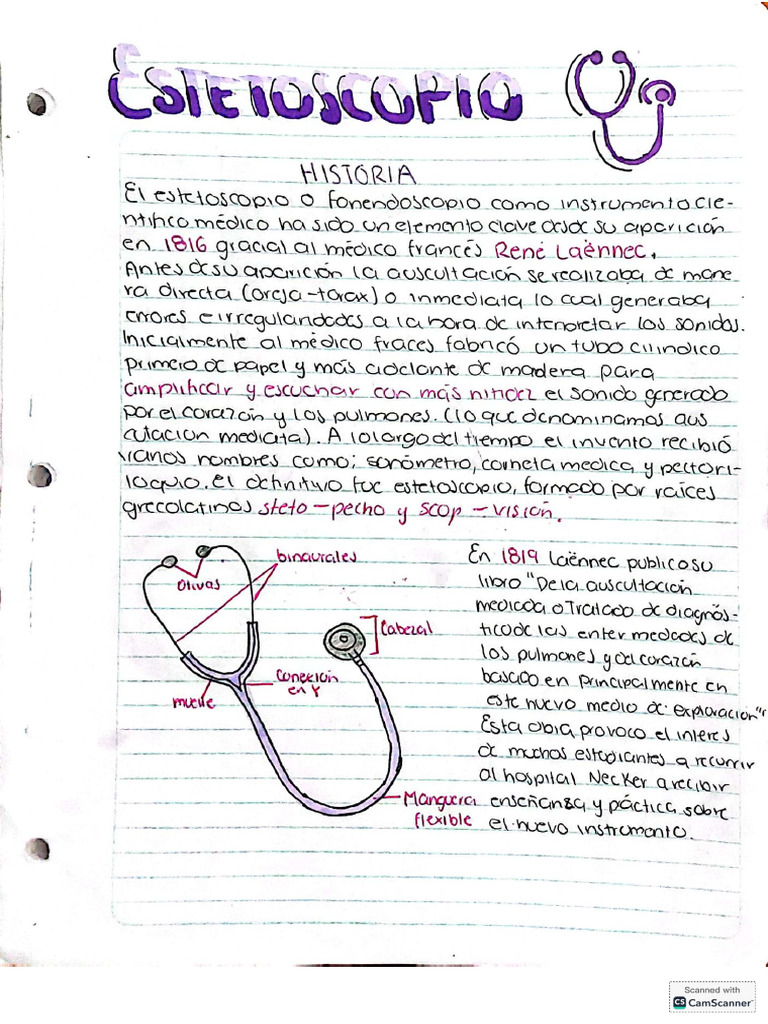 ESTETOSCOPIO
HISTORIA
El estetoscopio o fonendoscopio como instrumento cie-
ntifico médico ha sido un elemento clave desde su aparición
en 1816 gracial al médico francés René Laënnec.
Antes de su aparición la auscultación se realizaba de mane
ra directa (oreja-torax) o inmediata lo cual generaba
errores e irregularidades a la hora de interpretar los sonidos.
Inicialmente al médico fraces fabricó un tubo cilindico
primero de papel y más adelante de madera para
amplificar y escuchar con más nitidez el sonido generado
por el corazón y los pulmones. (lo que denominamos aus
cultacion mediata). A lo largo del tiempo el invento recibió
varios nombres como; sonómetro, corneta medica y pectori-
loquio. el definitivo fue estetoscopio, formado por raíces
grecolatinos steto-pecho y scop-visión.
binaurales
Olivas
Cabezal
Conexión
en Y
muelle
Manguera
flexible
En 1819 Laënnec publico su
libro "De la auscultación
mediada o Tratado de diagnós-
tico de las enfermedades de
los pulmones y del corazón
basado en principalmente en
este nuevo medio de exploración"
Esta obra provoco el interes
de muchos estudiantes a recurrir
al hospital Necker a recibir
enseñanza y práctica sobre
el nuevo instrumento.
Scanned with
CS CamScanner